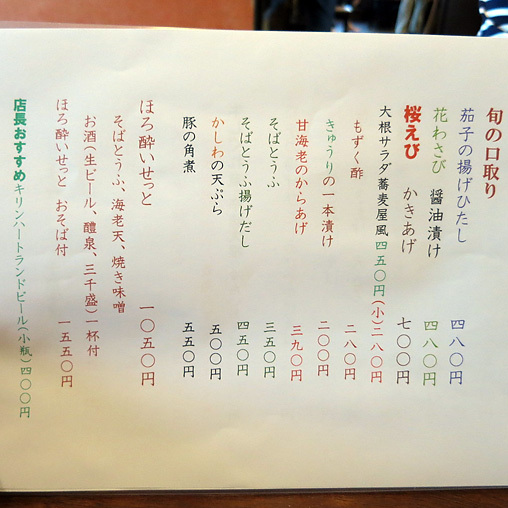 旬の口取り
茄子の揚げひたし 四八〇円
花わさび 醤油漬け 四八〇円
桜えび かきあげ 七〇〇円
大根サラダ蕎麦屋風 四五〇円(小)二八〇円
もずく酢 二八〇円
きゅうりの一本漬け 二〇〇円
甘海老のからあげ 三九〇円
そばとうふ 三五〇円
そばとうふ揚げだし 四五〇円
かしわの天ぷら 五〇〇円
豚の角煮 五五〇円
ほろ酔いせっと 一〇五〇円
そばとうふ、海老天、焼き味噌
お酒(生ビール、醴泉、三千盛)一杯付
ほろ酔いせっと おそば付 一五五〇円
店長おすすめキリンハートランドビール(小瓶)四〇〇円